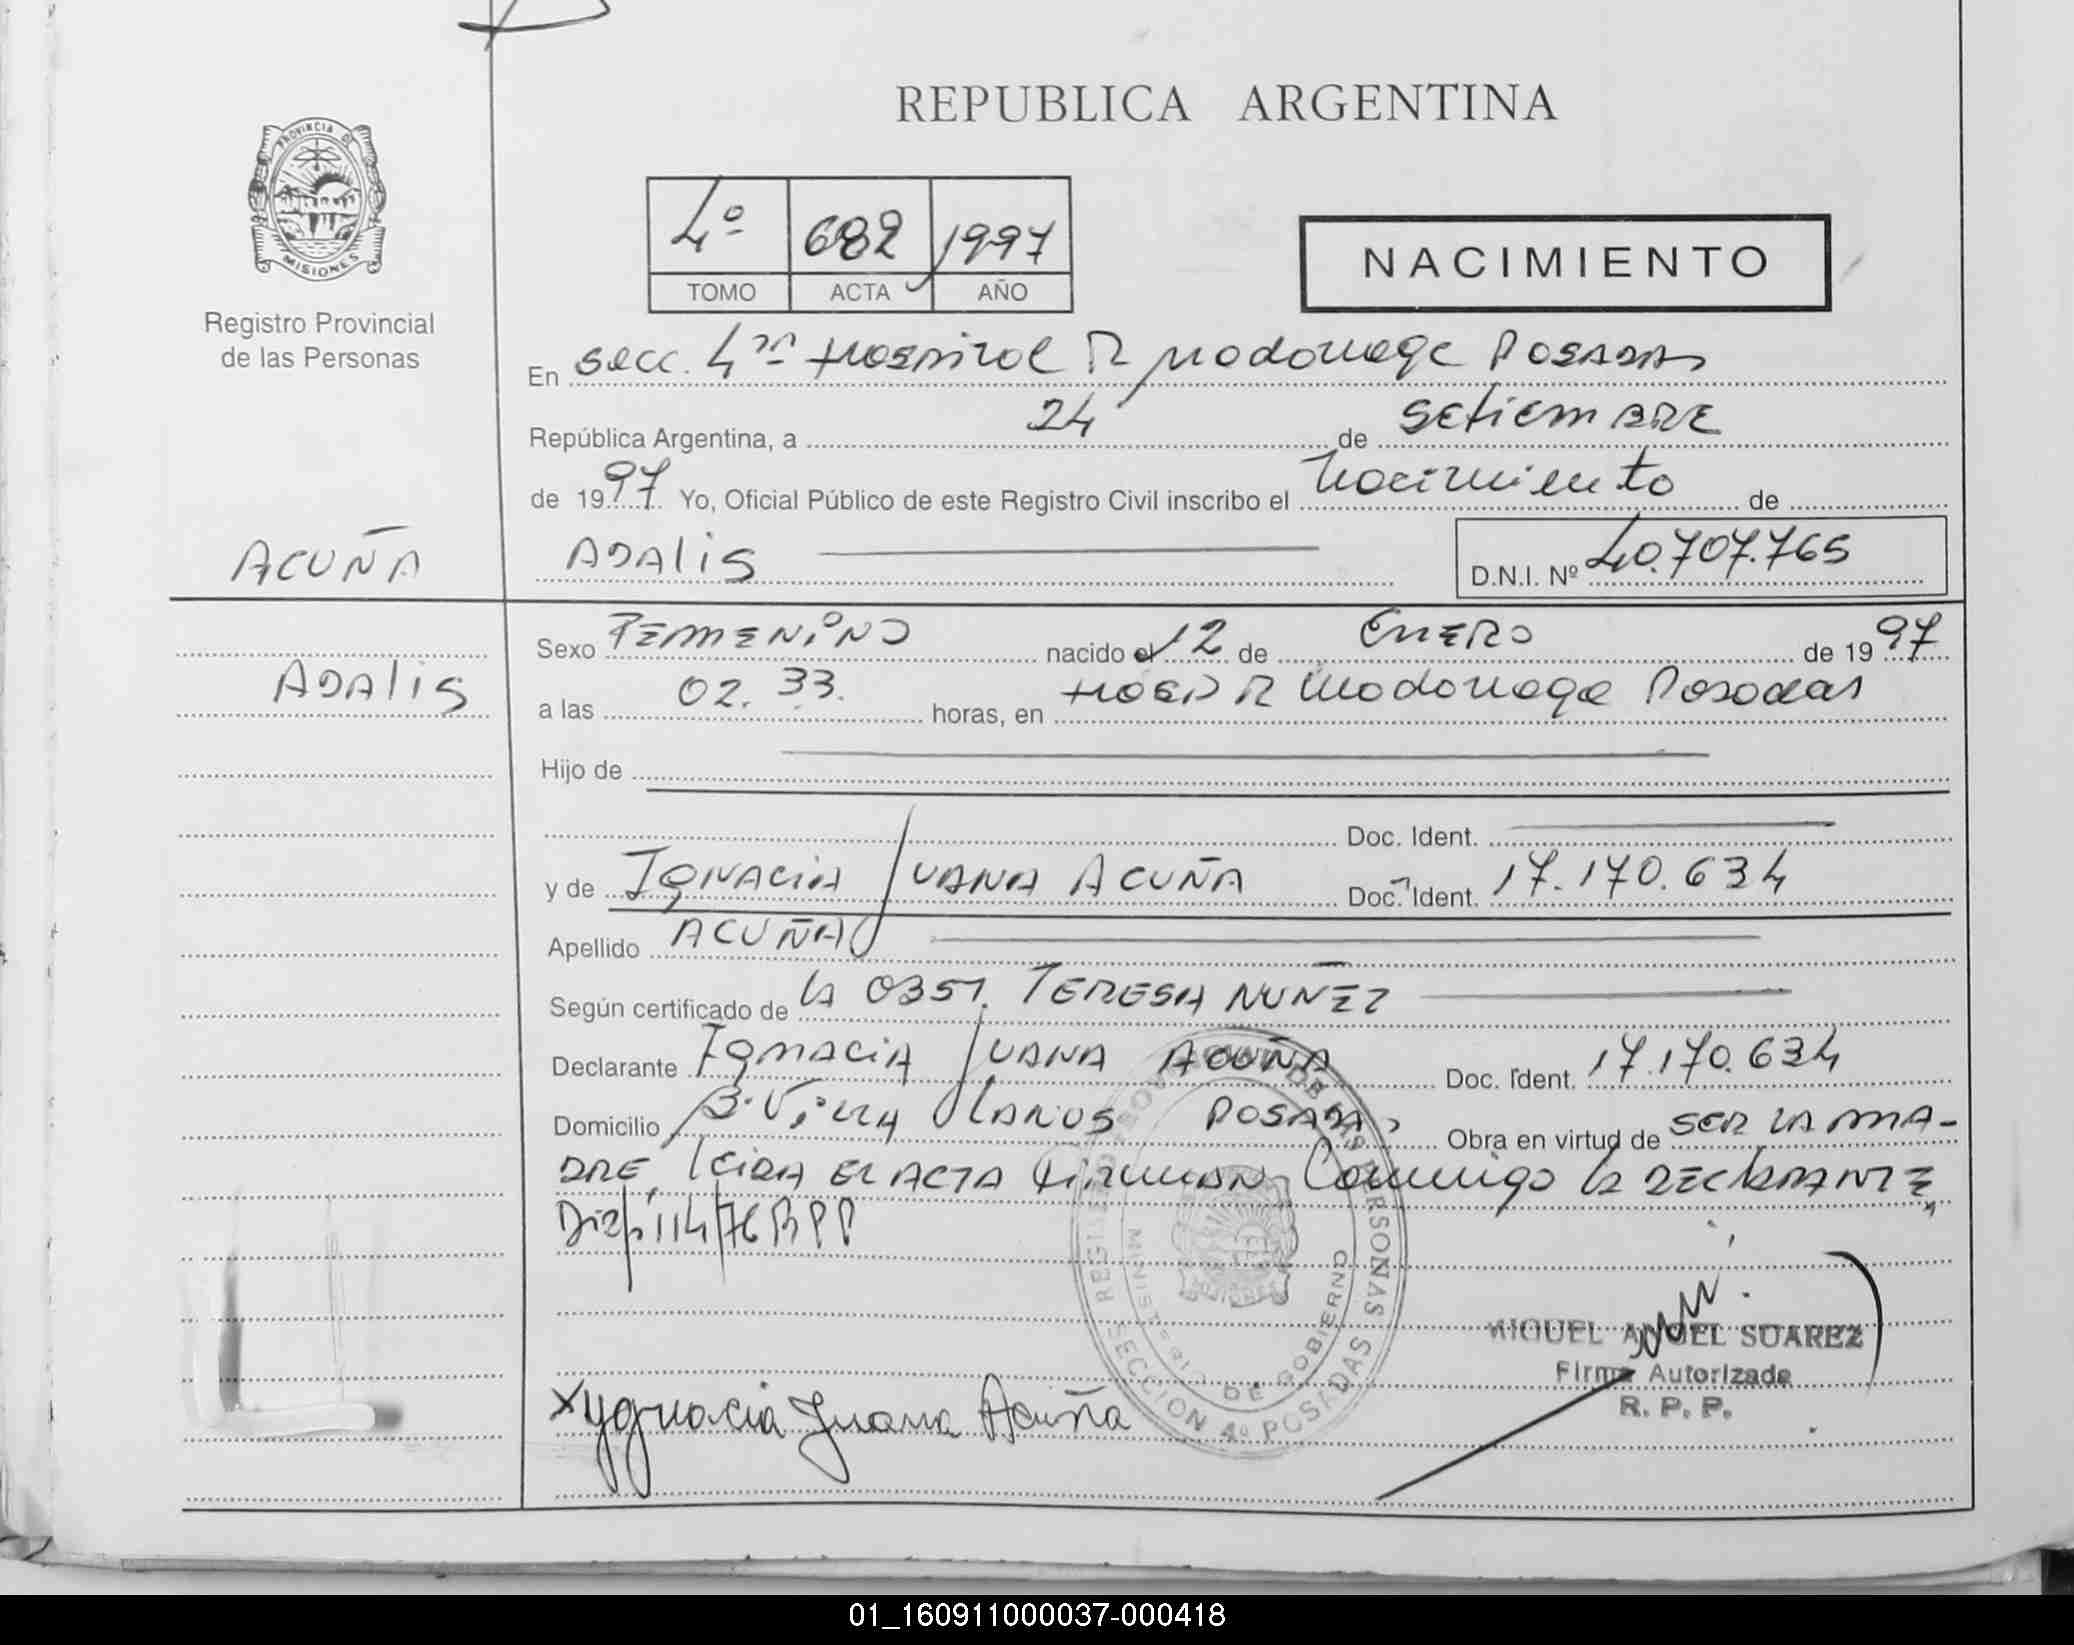 REPUBLICA ARGENTINA
PROVINCIA DE MISIONES
Registro Provincial
de las Personas
4º 682 1997
TOMO ACTA AÑO
NACIMIENTO
En secc. 4ta Hospital R Madariaga Posadas
República Argentina, a 24 de setiembre
de 1997 Yo, Oficial Público de este Registro Civil inscribo el nacimiento de
ACUÑA ADALIS D.N.I. Nº 40.707.765
Sexo FEMENINO nacido el 12 de ENERO de 1997
ADALIS
a las 02.33. horas, en HOSP R Madariaga Posadas
Hijo de
Doc. Ident.
y de IGNACIA JUANA ACUÑA Doc. Ident. 17.170.634
Apellido ACUÑA
Según certificado de LA OBST. TERESA NUÑEZ
Declarante IGNACIA JUANA ACUÑA Doc. Ident. 17.170.634
Domicilio B. VILLA LANUS POSADAS Obra en virtud de SER LA MA-
DRE, LEIDA EL ACTA FIRMAN Conmigo la DECLARANTE
Disp 114/76 RPP
REGISTRO PERSONAS
MINISTERIO DE GOBIERNO
SECCION 4º POSADAS
MIGUEL ANGEL SUAREZ
Firma Autorizada
R. P. P.
X Ygnacia Juana Acuña
01_160911000037-000418